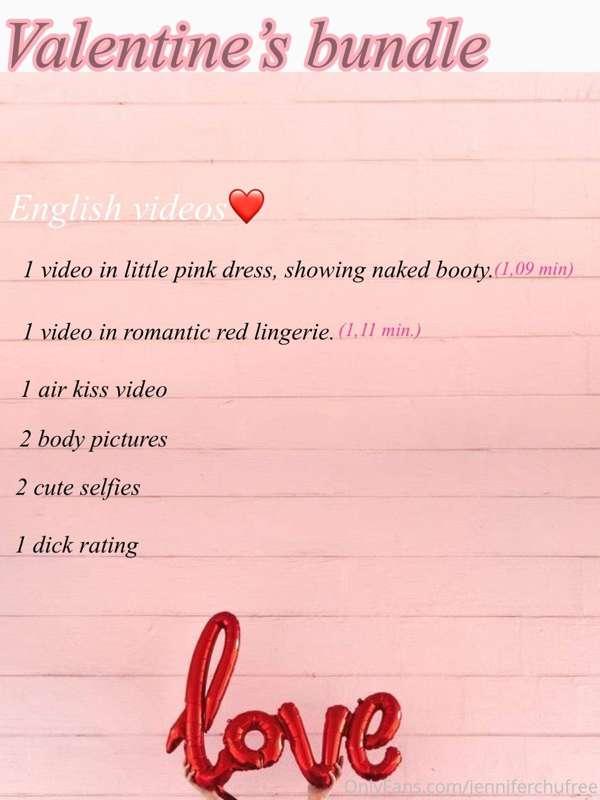 Valentine’s bundle
English videos❤️
1 video in little pink dress, showing naked booty.(1,09 min)
1 video in romantic red lingerie. (1,11 min.)
1 air kiss video
2 body pictures
2 cute selfies
1 dick rating
love
OnlyFans.com/jenniferchufree